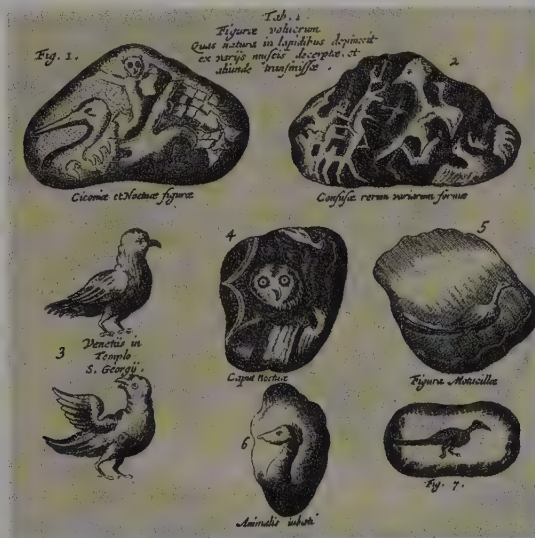 Tab. 1.
Figuræ volucrum
Quas natura in lapidibus depinxit
ex varijs musæis decerptæ, et
aliunde transmissæ.
Fig. 1.
2
Ciconiæ et Noctuæ figuræ
Confusæ rerum variarum formæ
4
5
Venetiis in
Templo
S. Georgij.
3
Caput Noctuæ
Figura Motacillæ
6
Fig. 7.
Animalis